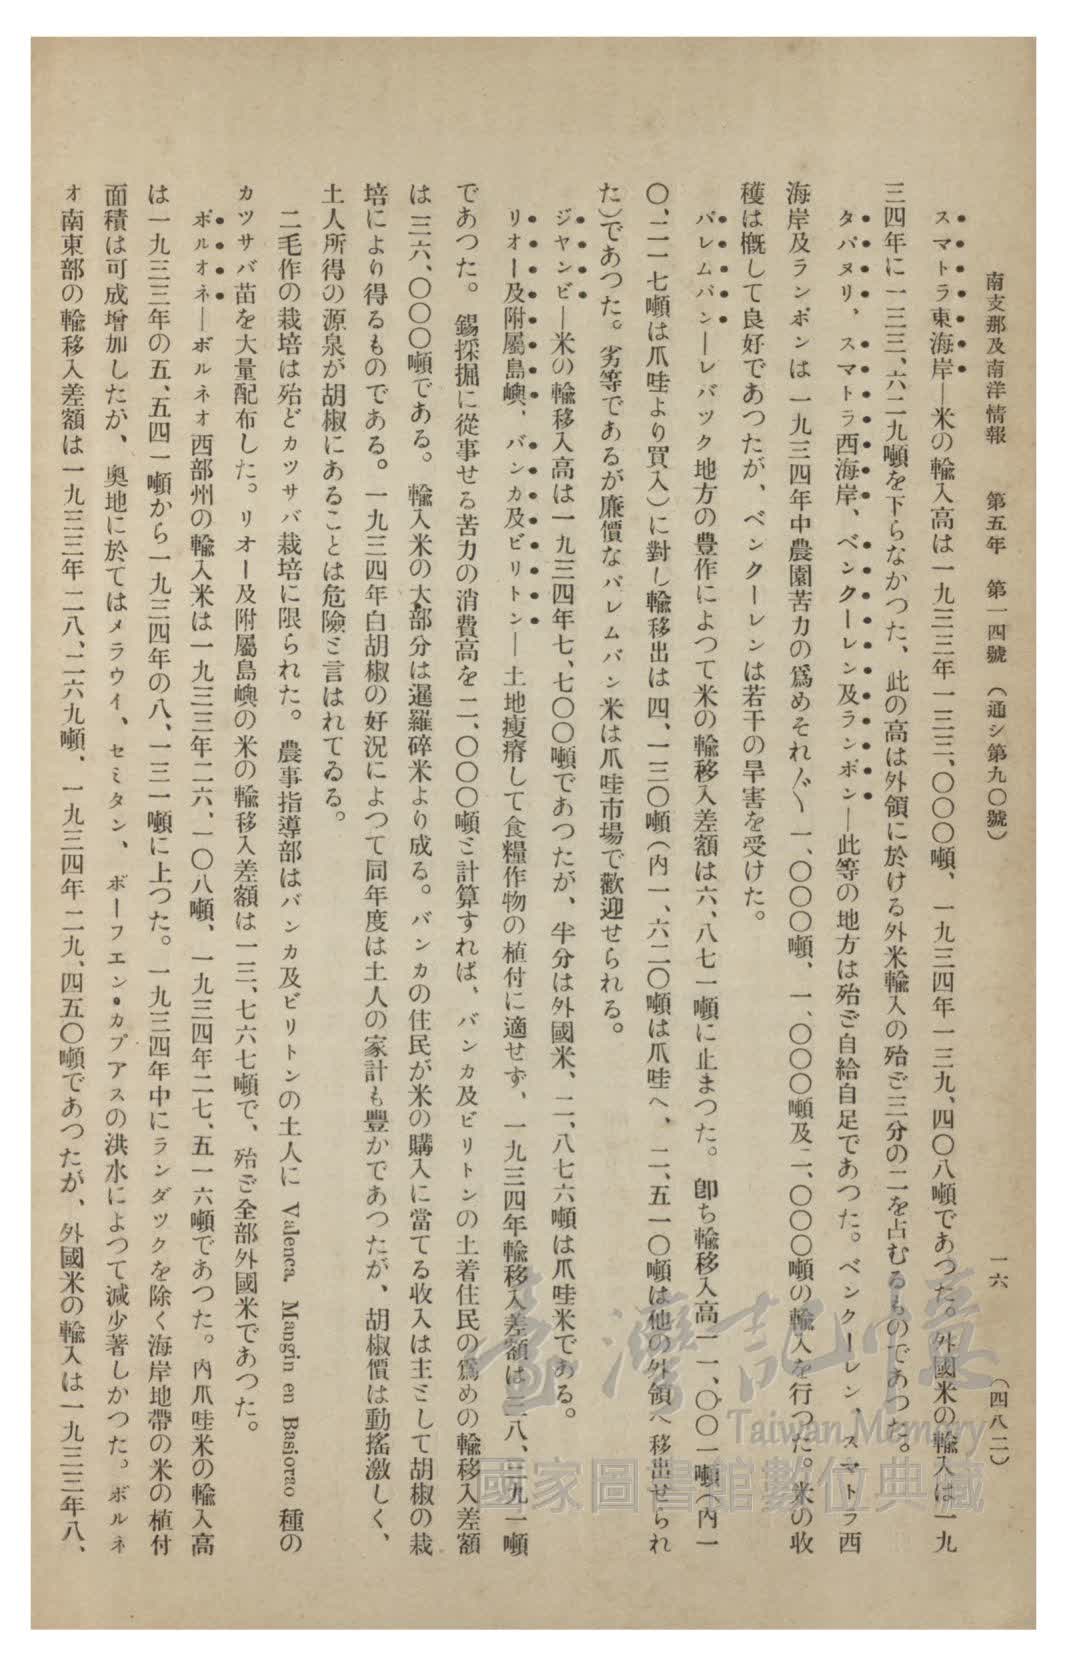 南支那及南洋情報　第五年　第一四號　（通シ第九〇號）　一六　（四八二）
スマトラ東海岸―米の輸入高は一九三三年一三三、〇〇〇噸、一九三四年一三九、四〇八噸であつた。外國米の輸入は一九
三四年に一三三、六二九噸を下らなかつた、此の高は外領に於ける外米輸入の殆ご三分の二を占むるものであつた。
タパヌリ、スマトラ西海岸、ベンクーレン及ランポン―此等の地方は殆ご自給自足であつた。ベンクーレン、スマトラ西
海岸及ランポンは一九三四年中農園苦力の爲めそれ〴〵一、〇〇〇噸、一、〇〇〇噸及二、〇〇〇噸の輸入を行つた。米の收
穫は槪して良好であつたが、ベンクーレンは若干の旱害を受けた。
パレムバン―レバック地方の豊作によつて米の輸移入差額は六、八七一噸に止まつた。卽ち輸移入高一一、〇〇一噸（內一
〇、二一七噸は爪哇より買入）に對し輸移出は四、一三〇噸（內一、六二〇噸は爪哇へ、二、五一〇噸は他の外領へ移出せられ
た）であつた。劣等であるが廉價なパレムバン米は爪哇市場で歡迎せられる。
ジャンビ―米の輸移入高は一九三四年七、七〇〇噸であつたが、半分は外國米、二、八七六噸は爪哇米である。
リオー及附屬島嶼、バンカ及ビリトン―土地瘦瘠して食糧作物の植付に適せず、一九三四年輸移入差額は三八、三九一噸
であつた。錫採掘に從事せる苦力の消費高を二、〇〇〇噸ミ計算すれば、バンカ及ビリトンの土着住民の爲めの輸移入差額
は三六、〇〇〇噸である。輸入米の大部分は暹羅碎米より成る。バンカの住民が米の購入に當てる收入は主ミして胡椒の栽
培により得るものである。一九三四年白胡椒の好況によつて同年度は土人の家計も豐かであつたが、胡椒價は動搖激しく、
土人所得の源泉が胡椒にあることは危險ミ言はれてゐる。
二毛作の栽培は殆どカツサバ栽培に限られた。農事指導部はバンカ及ビリトンの土人に Valenca, Mangin en Basiorao 種の
カツサバ苗を大量配布した。リオー及附屬島嶼の米の輸移入差額は一三、七六七噸で、殆ご全部外國米であつた。
ボルオネ―ボルネオ西部州の輸入米は一九三三年二六、一〇八噸、一九三四年二七、五一六噸であつた。內爪哇米の輸入高
は一九三三年の五、五四一噸から一九三四年の八、一三一噸に上つた。一九三四年中にランダックを除く海岸地帶の米の植付
面積は可成增加したが、奧地に於てはメラウイ、セミタン、ボーフエン・カプアスの洪水によつて減少著しかつた。ボルネ
オ南東部の輸移入差額は一九三三年二八、二六九噸、一九三四年二九、四五〇噸であつたが、外國米の輸入は一九三三年八、
臺灣記憶
Taiwan Memory
國家圖書館數位典藏